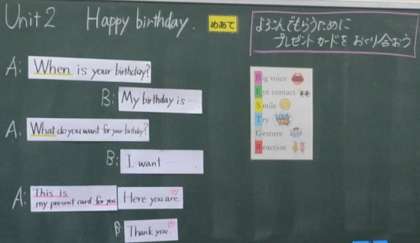 Unit 2 Happy birthday.
めあて
よろこんでもらうために
プレゼントカードをおくり合おう
A: When is your birthday?
B: My birthday is
A: What do you want for your birthday?
B: I want
A: This is
my present card for you. Here you are.
B: Thank you.
Big voice
Eye contact
Smile
Try
Gesture
Reaction